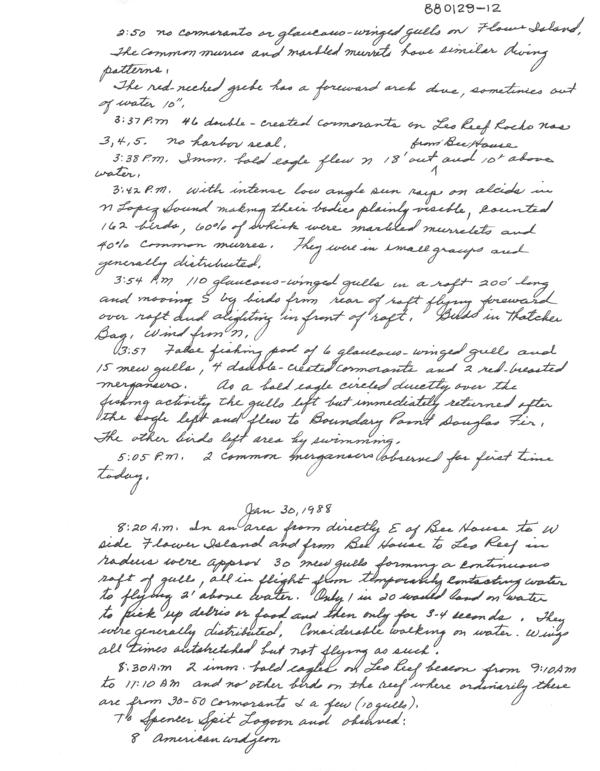 880129-12
2:50 no cormorants or glaucous-winged gulls on Flower Island.
The common murres and marbled murrets have similar diving
patterns.
The red-necked grebe has a foreward arch dive, sometimes out
of water 10".
3:37 P.M 46 double-crested cormorants on Leo Reef Rocks Nos
3,4,5. no harbor seal.
from Bee House
3:38 P.M. Imm. bald eagle flew N 18' out and 10' above
water.
3:42 P.M. With intense low angle sun rays on alcids in
N Lopez Sound making their bodies plainly visible, counted
162 birds, 60% of which were marbled murrelets and
40% common murres. They were in small groups and
generally distributed.
3:54 P.M 110 glaucous-winged gulls in a raft 200' long
and moving S by birds from rear of raft flying foreward
over raft and alighting in front of raft. Birds in Thatcher
Bay, wind from N.
3:57 False fishing pod of 6 glaucous-winged gulls and
15 mew gulls, 4 double-crested cormorants and 2 red-breasted
mergansers. As a bald eagle circled directly over the
fishing activity the gulls left but immediately returned after
the eagle left and flew to Boundary Point Douglas Fir.
The other birds left area by swimming.
5:05 P.M. 2 common mergansers observed for first time
today.
Jan 30, 1988
8:20 A.M. In an area from directly E of Bee House to W
side Flower Island and from Bee House to Leo Reef in
radius were approx 30 mew gulls forming a continuous
raft of gulls, all in flight from temporarily contacting water
to flying 2' above water. Only 1 in 20 would land on water
to pick up debris or food and then only for 3-4 seconds. They
were generally distributed. Considerable walking on water. Wings
all times outstretched but not flying as such.
8:30 A.M 2 imm. bald eagles on Leo Reef beacon from 9:10 AM
to 11:10 AM and no other birds on the reef where ordinarily there
are from 30-50 cormorants & a few (10 gulls).
To Spencer Spit Lagoon and observed:
8 American widgeon